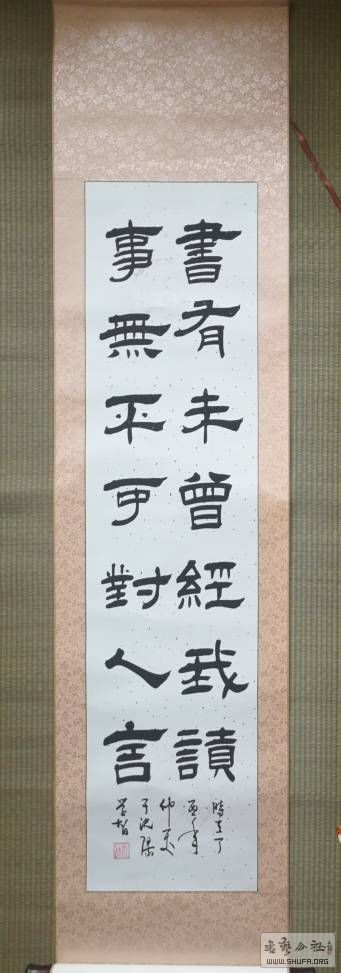 書有未曾經我讀
事無不可對人言
時在丁
酉年
仲夏
于沈陽
书艺公社
WWW.SHUFA.ORG